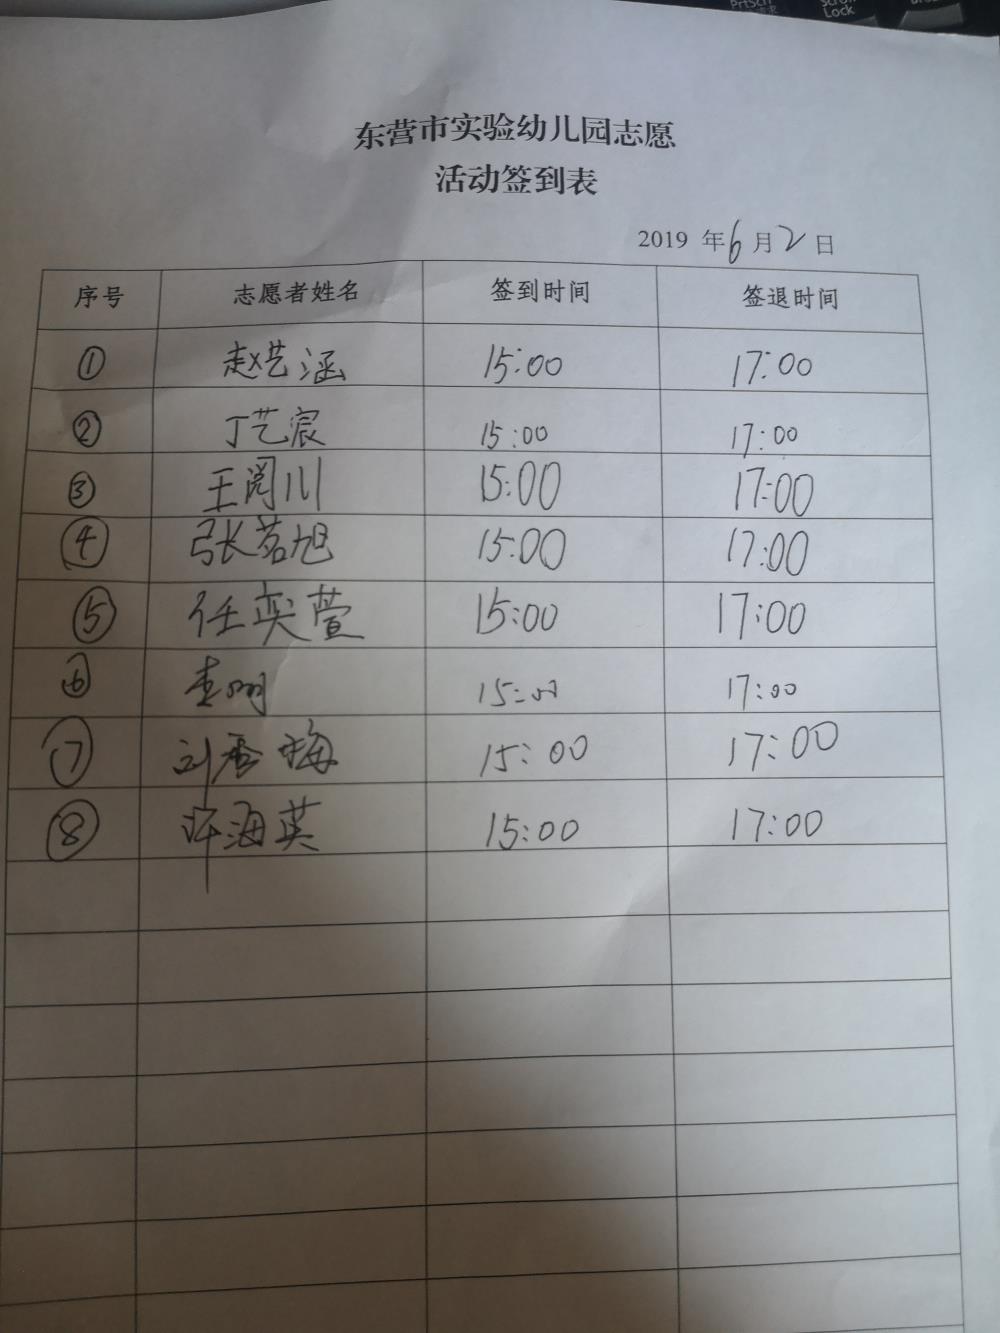 PrtSc
Scroll
Lock
东营市实验幼儿园志愿
活动签到表
2019 年6月2日
序号 志愿者姓名 签到时间 签退时间
① 赵艺涵 15:00 17:00
② 丁艺宸 15:00 17:00
③ 王阅川 15:00 17:00
④ 张茗旭 15:00 17:00
⑤ 任奕萱 15:00 17:00
⑥ 15:00 17:00
⑦ 刘秀梅 15:00 17:00
⑧ 许海英 15:00 17:00